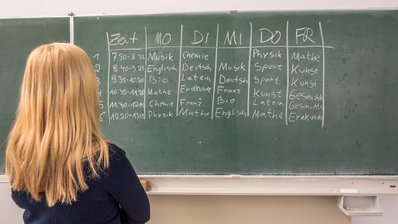 Zeit MO DI MI DO FR
1 7.50-8.35 Musik Chemie Physik Mathe
2 8.40-9.25 Englisch Deutsch Musik Sport Kunst
Bio Latein Deutsch Sport Kunst
Mathe Erdkunde Franz Kunst Geschichte
Chemie Franz Bio Latein Geschichte
Physik Mathe Englisch Mathe Erdkunde